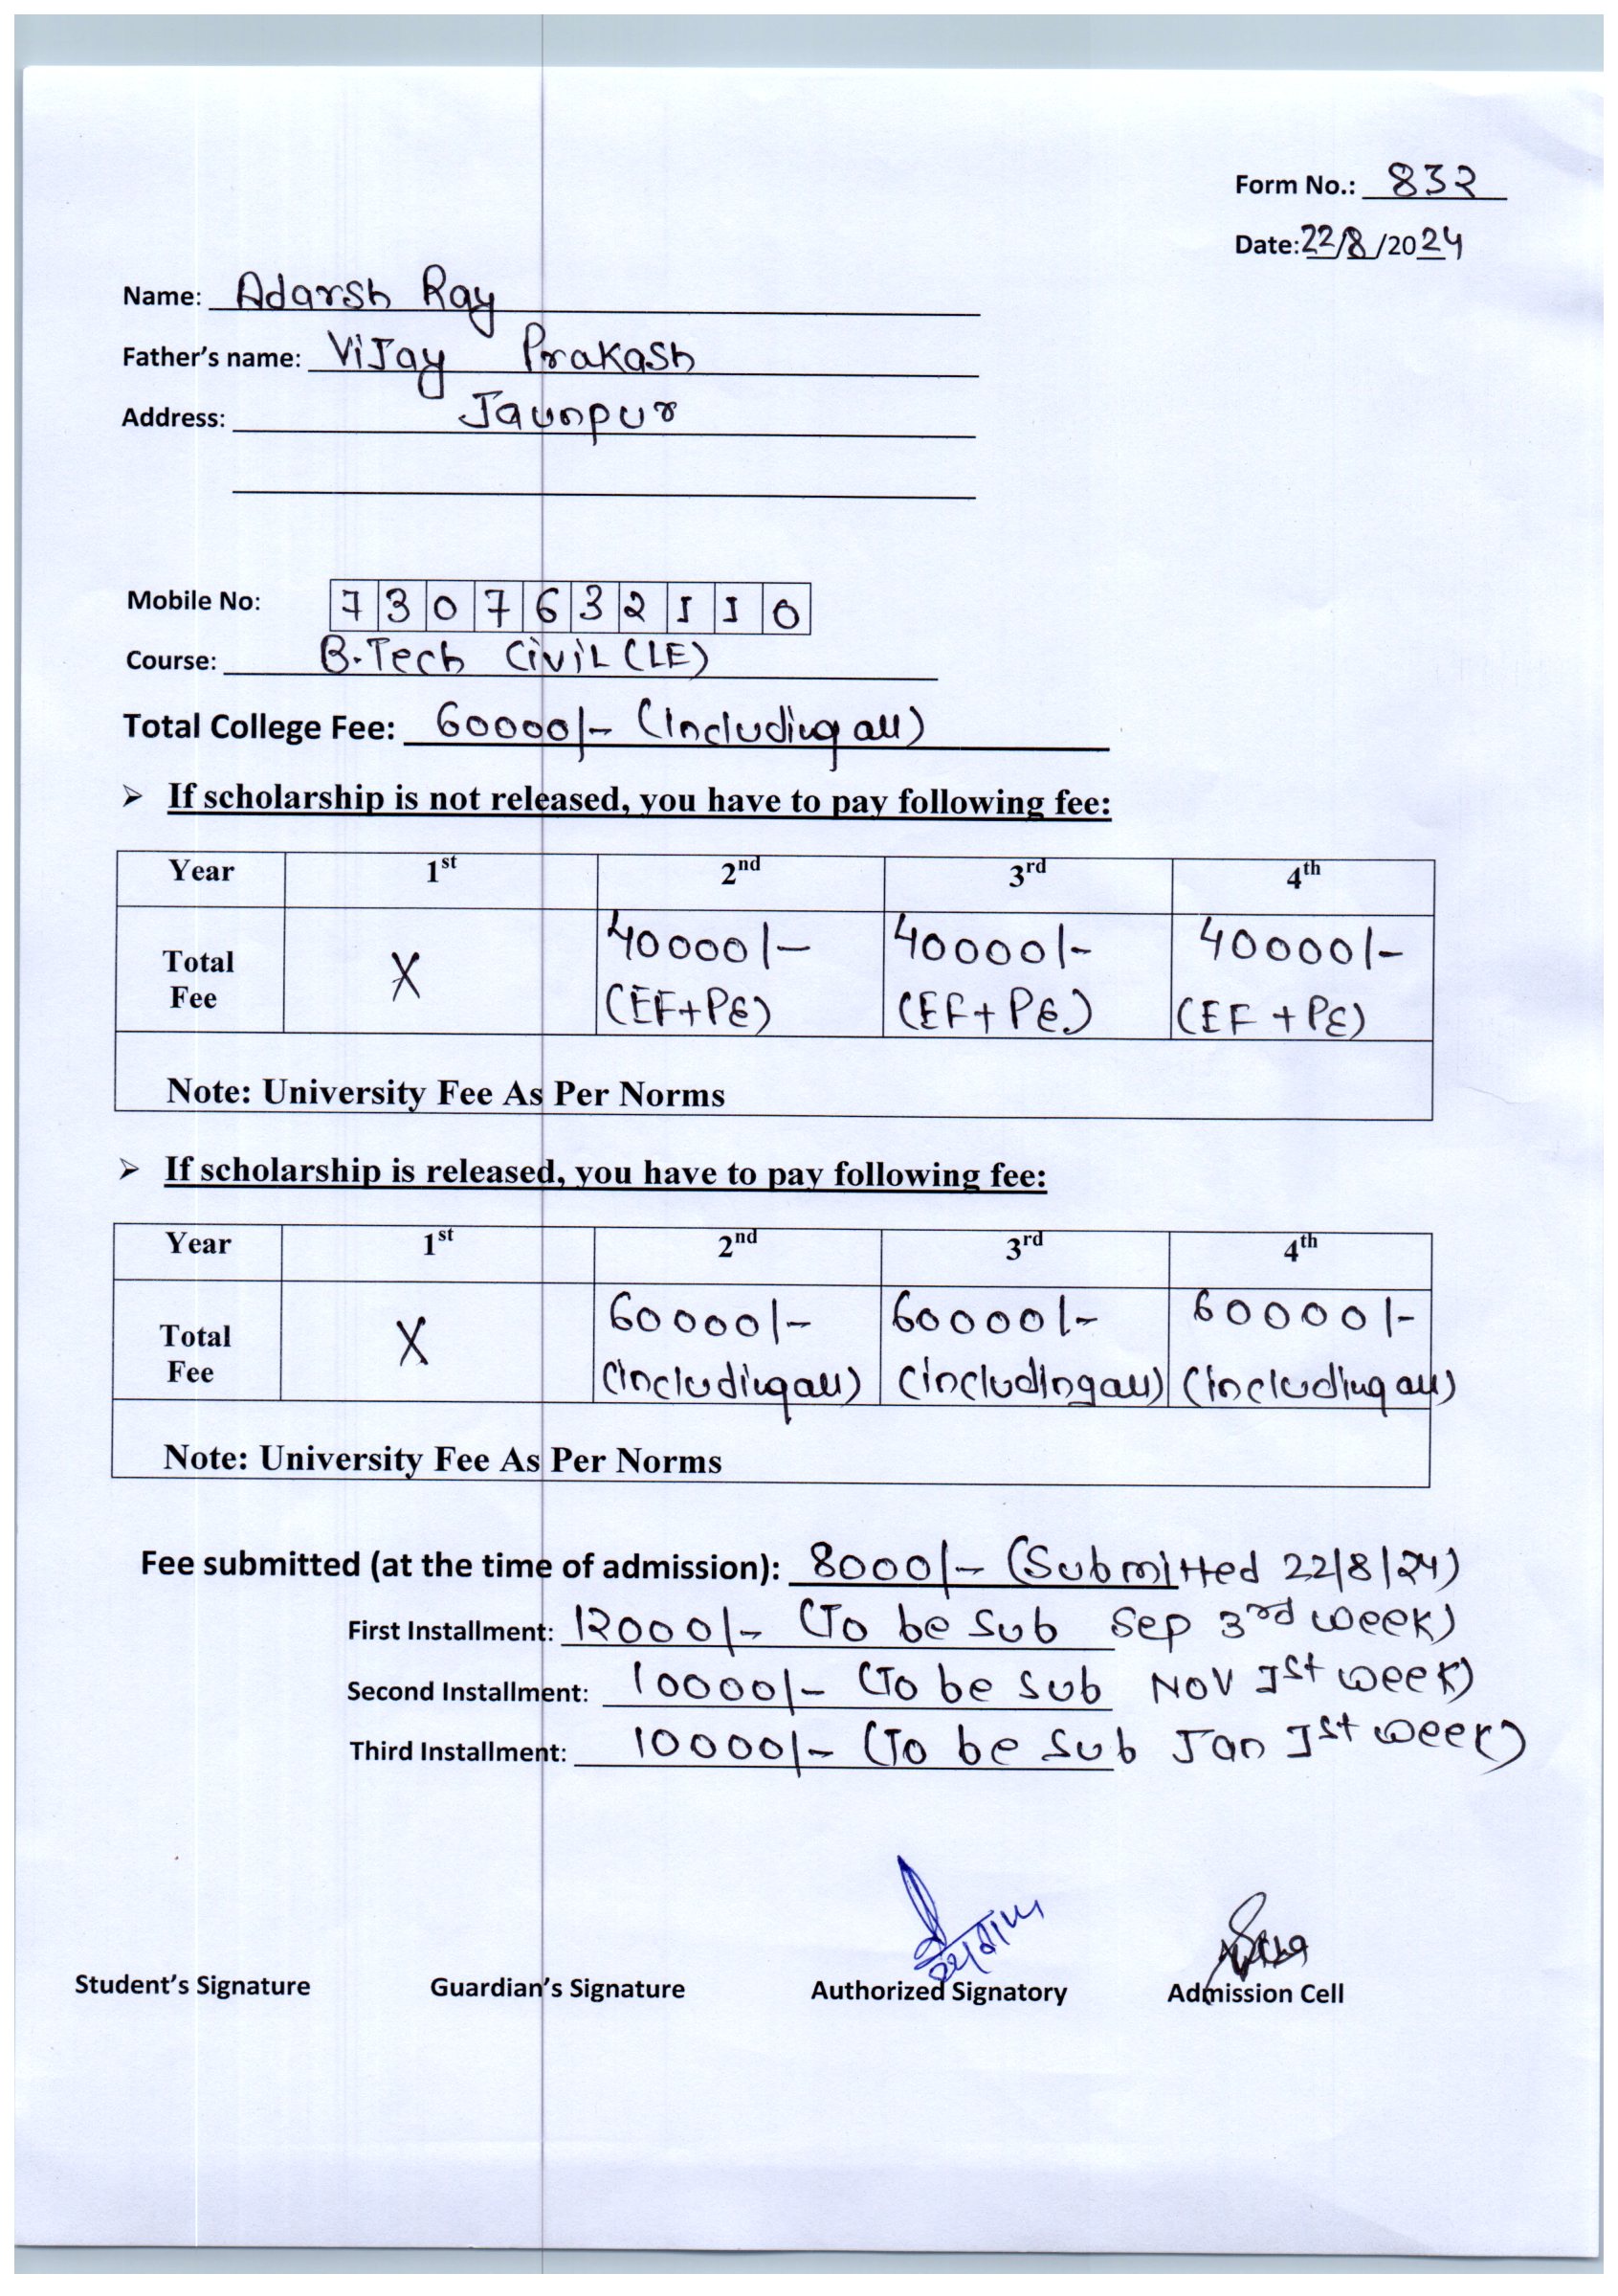 Form No.: 832
Date:22/8/2024
Name: Adarsh Ray
Father's name: ViJay Prakash
Address: Jaunpur
Mobile No: 7 3 0 7 6 3 2 1 1 0
Course: B.Tech CiviL (LE)
Total College Fee: 60000/- (Including all)
➢ If scholarship is not released, you have to pay following fee:
Year 1st 2nd 3rd 4th
Total Fee X 40000/- 40000/- 40000/-
(EF+PE) (EF+PE.) (EF+PE)
Note: University Fee As Per Norms
➢ If scholarship is released, you have to pay following fee:
Year 1st 2nd 3rd 4th
Total Fee X 60000/- 60000/- 60000/-
(including all) (including all) (including all)
Note: University Fee As Per Norms
Fee submitted (at the time of admission): 8000/- (Submitted 22/8/24)
First Installment: 12000/- (To be sub Sep 3rd week)
Second Installment: 10000/- (To be sub NOV 1st week)
Third Installment: 10000/- (To be sub Jan 1st week)
Student's Signature Guardian's Signature Authorized Signatory Admission Cell